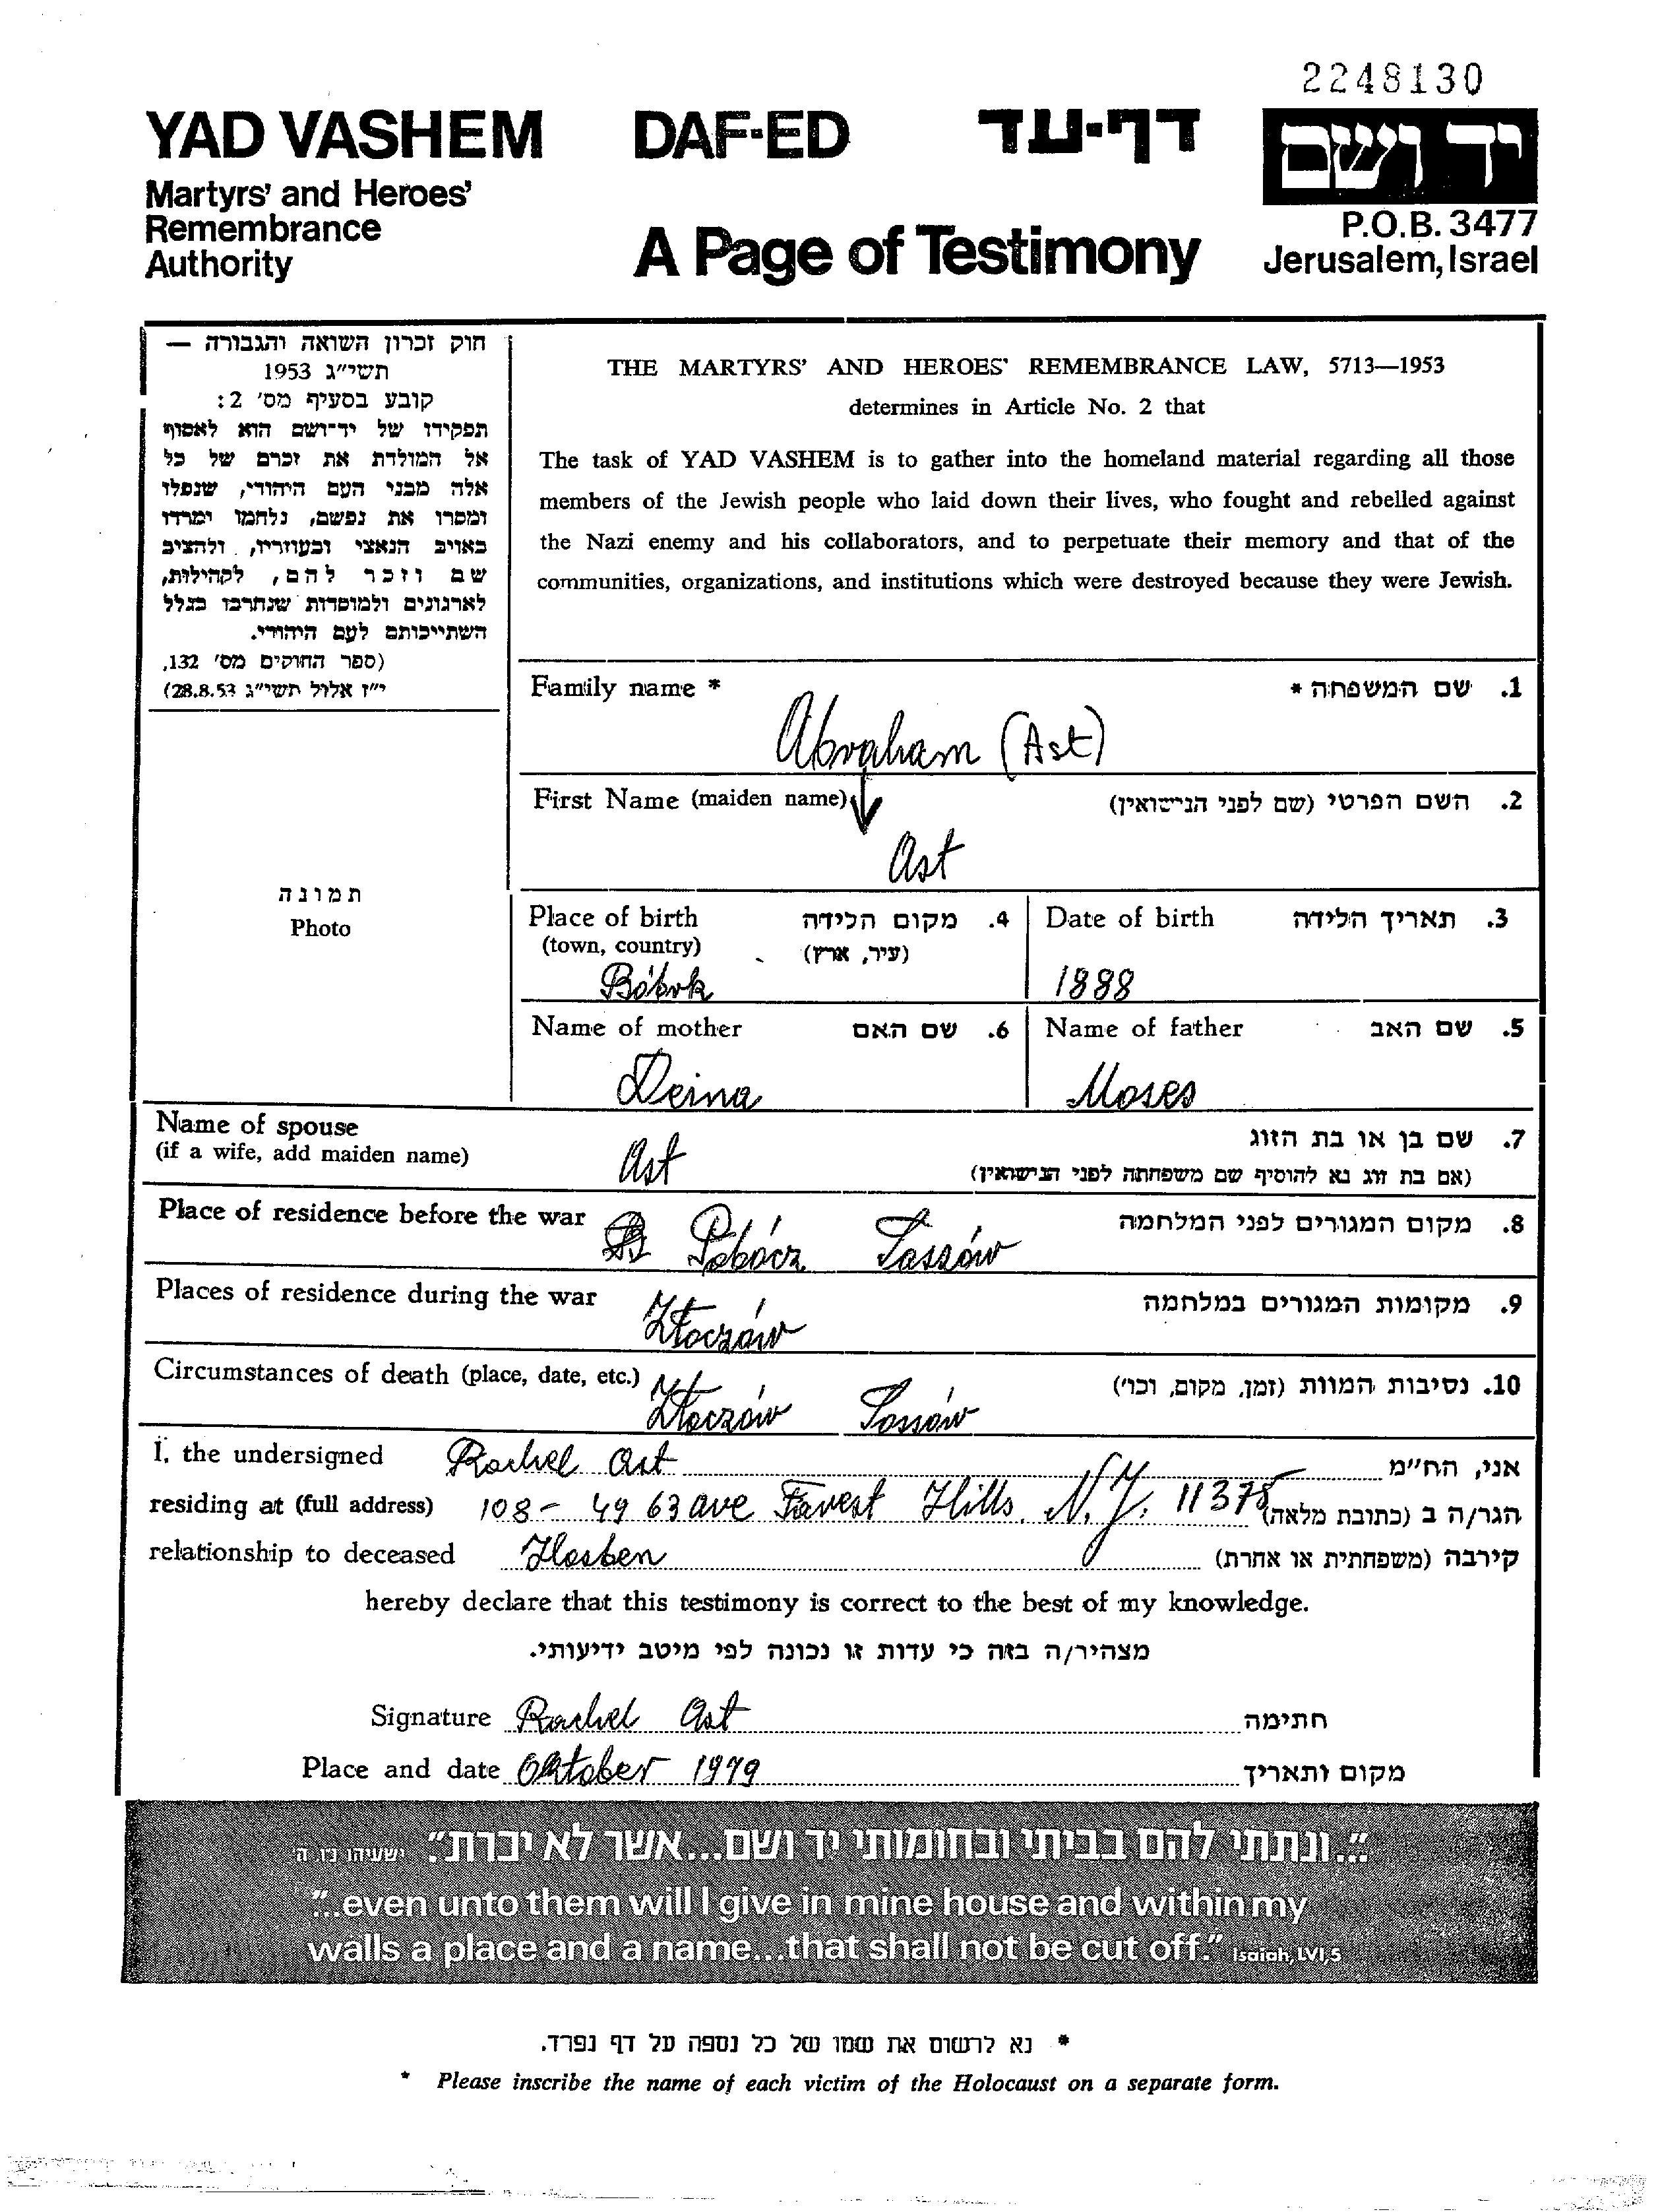 2248130
YAD VASHEM DAF-ED דף-עד יד ושם
Martyrs' and Heroes'
Remembrance
Authority
A Page of Testimony
P.O.B. 3477
Jerusalem, Israel
חוק זכרון השואה והגבורה —
תשי"ג 1953
קובע בסעיף מס' 2:
תפקידו של יד-ושם הוא לאסוף
אל המולדת את זכרם של כל
אלה מבני העם היהודי, שנפלו
ומסרו את נפשם, נלחמו ומרדו
באויב הנאצי ובעוזריו, ולהציב
שם וזכר להם, לקהילות,
לארגונים ולמוסדות שנחרבו בגלל
השתייכותם לעם היהודי.
(ספר החוקים מס' 132,
י"ז אלול תשי"ג 28.8.53)
THE MARTYRS' AND HEROES' REMEMBRANCE LAW, 5713—1953
determines in Article No. 2 that
The task of YAD VASHEM is to gather into the homeland material regarding all those
members of the Jewish people who laid down their lives, who fought and rebelled against
the Nazi enemy and his collaborators, and to perpetuate their memory and that of the
communities, organizations, and institutions which were destroyed because they were Jewish.
Family name * 1. שם המשפחה *
Abraham (Ast)
First Name (maiden name) 2. השם הפרטי (שם לפני הנישואין)
Ast
תמונה
Photo
Place of birth 4. מקום הלידה
(town, country) (עיר, ארץ)
Bóbrk
Date of birth 3. תאריך הלידה
1888
Name of mother 6. שם האם
Deina
Name of father 5. שם האב
Moses
Name of spouse 7. שם בן או בת הזוג
(if a wife, add maiden name) Ast (אם בת זוג נא להוסיף שם משפחתה לפני הנישואין)
Place of residence before the war Sassów 8. מקום המגורים לפני המלחמה
Places of residence during the war Złoczów 9. מקומות המגורים במלחמה
Circumstances of death (place, date, etc.) Złoczów Sassów 10. נסיבות המוות (זמן, מקום, וכו')
I, the undersigned Rachel Ast אני, הח"מ
residing at (full address) 108- 49 63 ave Forest Hills, N.Y. 11375 הגר/ה ב (כתובת מלאה)
relationship to deceased Hosben קירבה (משפחתית או אחרת)
hereby declare that this testimony is correct to the best of my knowledge.
מצהיר/ה בזה כי עדות זו נכונה לפי מיטב ידיעותי.
Signature Rachel Ast חתימה
Place and date Oktober 1979 מקום ותאריך
"...ונתתי להם בביתי ובחומותי יד ושם...אשר לא יכרת." ישעיהו נו, ה'
"...even unto them will I give in mine house and within my
walls a place and a name...that shall not be cut off." Isaiah, LVI,5
* נא לרשום את שמו של כל נספה על דף נפרד.
* Please inscribe the name of each victim of the Holocaust on a separate form.